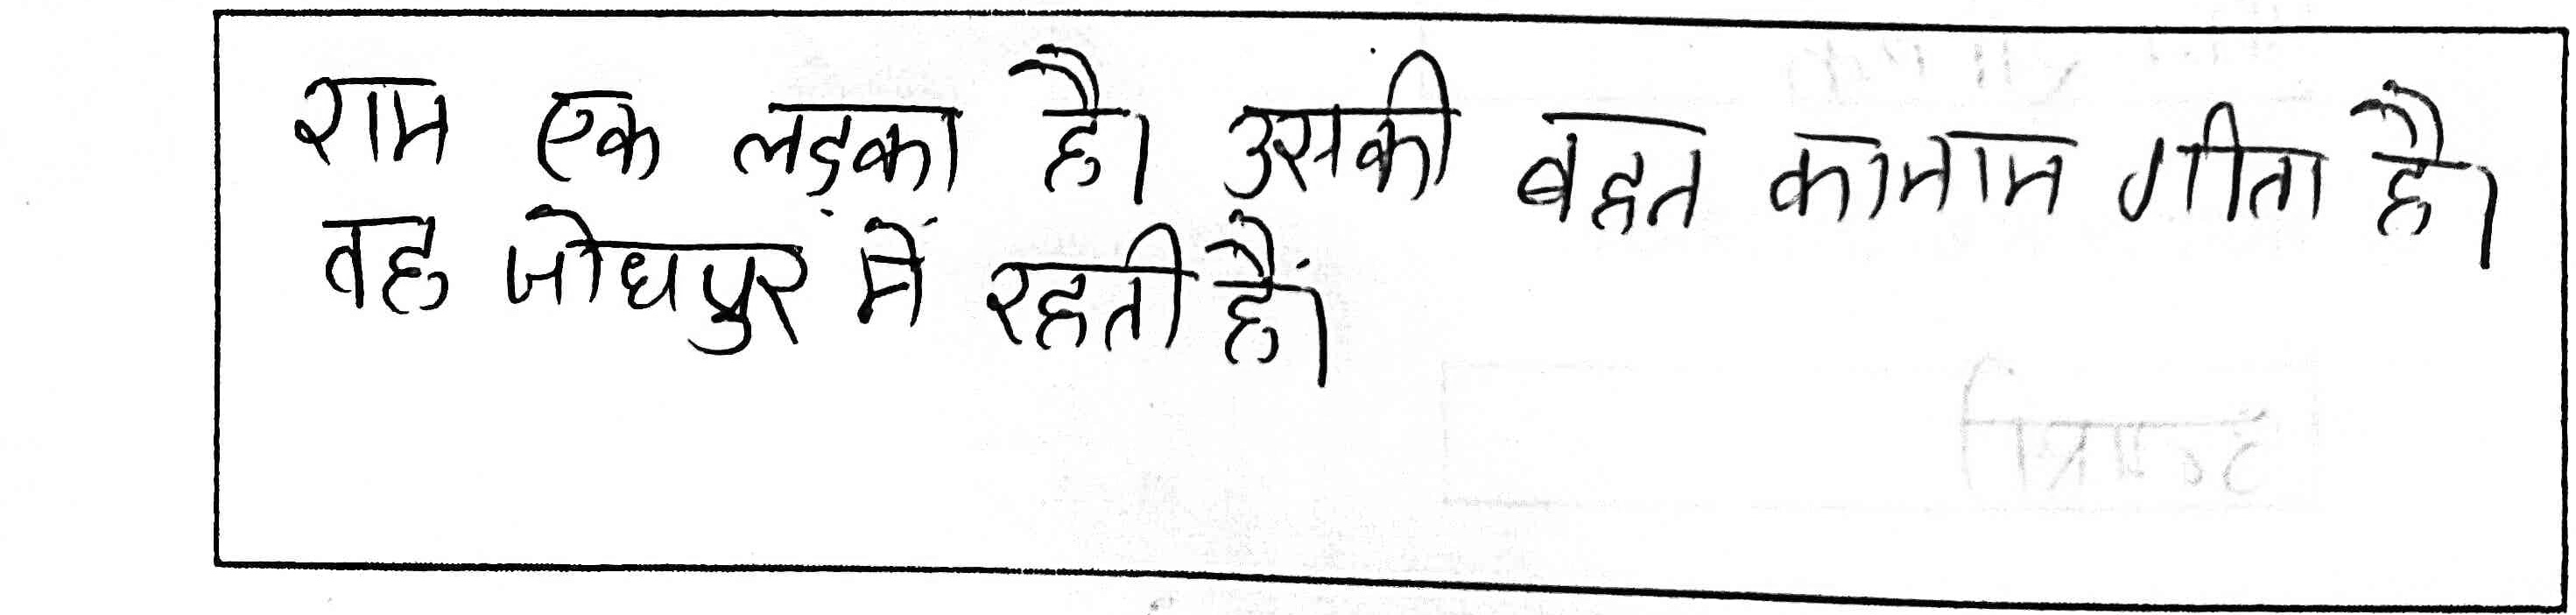 राम एक लड़का है। उसकी बहन का नाम गीता है।
वह जोधपुर में रहती हैं।